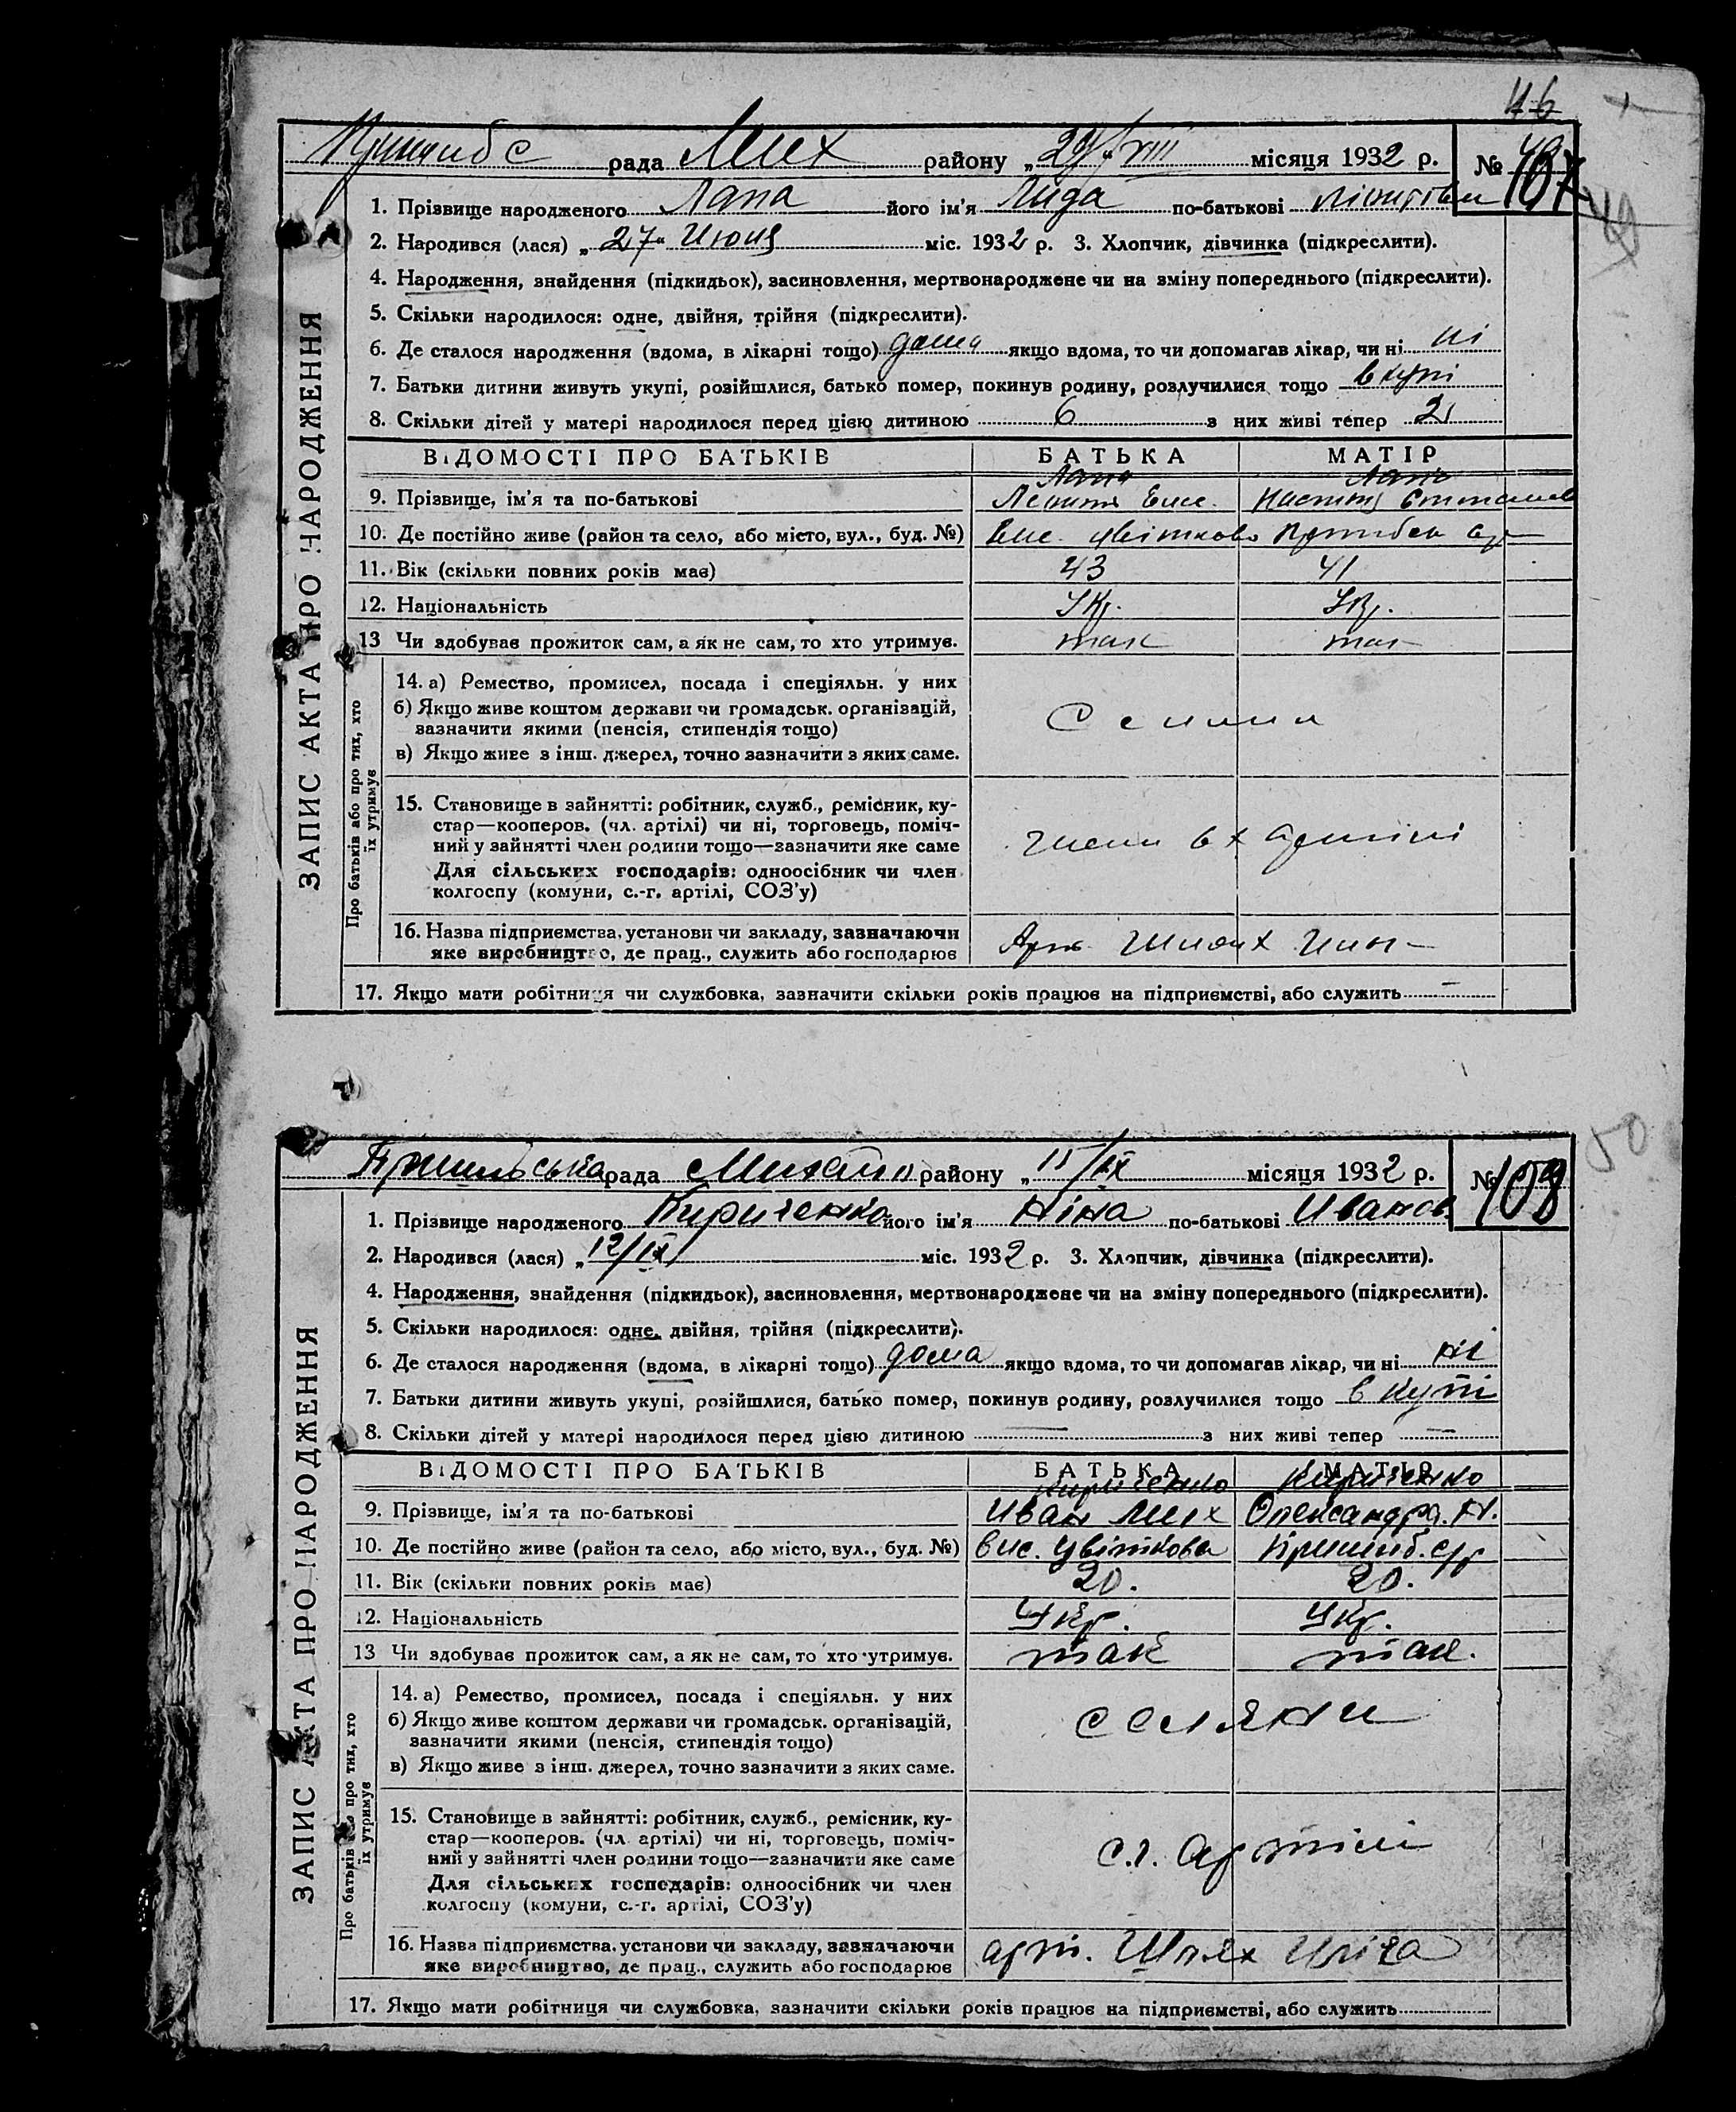 46
рада Мих району „29/VIII місяця 1932 р. № 107
49
1. Прізвище народженого Лапа його ім'я Лида по-батькові
2. Народився (лася) „27" Июня міс. 1932 р. 3. Хлопчик, дівчинка (підкреслити).
4. Народження, знайдення (підкидьок), засиновлення, мертвонароджене чи на зміну попереднього (підкреслити).
5. Скільки народилося: одне, двійня, трійня (підкреслити).
6. Де сталося народження (вдома, в лікарні тощо) дома якщо вдома, то чи допомагав лікар, чи ні ні
7. Батьки дитини живуть укупі, розійшлися, батько помер, покинув родину, розлучилися тощо вкупі
8. Скільки дітей у матері народилося перед цією дитиною 6 з них живі тепер 2
ВІДОМОСТІ ПРО БАТЬКІВ БАТЬКА МАТІР
Лапа Лапа
9. Прізвище, ім'я та по-батькові
10. Де постійно живе (район та село, або місто, вул., буд. №) Вис. Цвітково
11. Вік (скільки повних років має) 43 41
12. Національність Укр. Укр.
13 Чи здобував прожиток сам, а як не сам, то хто утримує. так так
14. а) Ремество, промисел, посада і спеціяльн. у них
б) Якщо живе коштом держави чи громадськ. організацій,
зазначити якими (пенсія, стипендія тощо)
в) Якщо живе з інш. джерел, точно зазначити з яких саме.
Селяни
15. Становище в зайнятті: робітник, служб., ремісник, ку-
стар—кооперов. (чл. артілі) чи ні, торговець, поміч-
ний у зайнятті член родини тощо—зазначити яке саме
Для сільських господарів: одноосібник чи член
колгоспу (комуни, с.-г. артілі, СОЗ'у)
артілі
16. Назва підприємства, установи чи закладу, зазначаючи
яке виробництво, де прац., служить або господарює
Арт. Шлях
17. Якщо мати робітниця чи службовка, зазначити скільки років працює на підприємстві, або служить —
ЗАПИС АКТА ПРО НАРОДЖЕННЯ
Про батьків або про тих, хто
їх утримує
50
рада Михайл району „11/IX місяця 1932 р. № 108
1. Прізвище народженого Кириченко його ім'я Ніна по-батькові Иванов.
2. Народився (лася) „12/IX міс. 1932 р. 3. Хлопчик, дівчинка (підкреслити).
4. Народження, знайдення (підкидьок), засиновлення, мертвонароджене чи на зміну попереднього (підкреслити).
5. Скільки народилося: одне, двійня, трійня (підкреслити).
6. Де сталося народження (вдома, в лікарні тощо) дома якщо вдома, то чи допомагав лікар, чи ні ні
7. Батьки дитини живуть укупі, розійшлися, батько помер, покинув родину, розлучилися тощо в купі
8. Скільки дітей у матері народилося перед цією дитиною — з них живі тепер —
ВІДОМОСТІ ПРО БАТЬКІВ БАТЬКА МАТІР
Кириченко Кириченко
9. Прізвище, ім'я та по-батькові Иван Мих Олександра. Н.
10. Де постійно живе (район та село, або місто, вул., буд. №) вис. Цвіткова
11. Вік (скільки повних років має) 20. 20.
12. Національність Укр. Укр.
13 Чи здобував прожиток сам, а як не сам, то хто утримує. так так.
14. а) Ремество, промисел, посада і спеціяльн. у них
б) Якщо живе коштом держави чи громадськ. організацій,
зазначити якими (пенсія, стипендія тощо)
в) Якщо живе з інш. джерел, точно зазначити з яких саме.
селяни
15. Становище в зайнятті: робітник, служб., ремісник, ку-
стар—кооперов. (чл. артілі) чи ні, торговець, поміч-
ний у зайнятті член родини тощо—зазначити яке саме
Для сільських господарів: одноосібник чи член
колгоспу (комуни, с.-г. артілі, СОЗ'у)
с.г. артілі
16. Назва підприємства, установи чи закладу, зазначаючи
яке виробництво, де прац., служить або господарює
арт. Шлях Іліча
17. Якщо мати робітниця чи службовка, зазначити скільки років працює на підприємстві, або служить
ЗАПИС АКТА ПРО НАРОДЖЕННЯ
Про батьків або про тих, хто
їх утримує